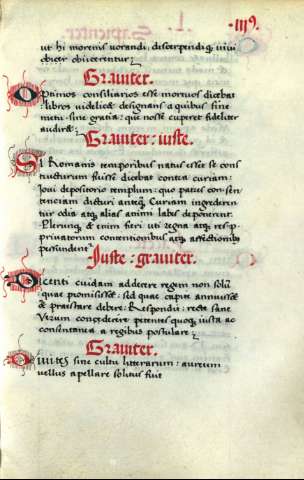 ·119·
ut hi morsus uorandi, discerpendiq; uiui
obicerentur
Grauiter.
Optimos consiliarios esse mortuos dicebat
libros uidelicet designans a quibus sine
metu: sine gratia: que nosse cuperet fideliter
audiret
Grauiter: iuste.
Si Romanis temporibus natus esset se cons
tructurum fuisse dicebat contra curiam:
Ioui depositorio templum: quo patres con sen
tenciam dicturi anteq. Curiam ingrederen
tur odia atq; alias animi labes deponerent.
Plerunq; enim fieri uti regna atq; resp.
priuatorum contentionibus atq; affectionibus
Iuste: grauiter.
Dicenti cuidam addecere regem non solũ
quae promisisset: sed quae capite annuisset
praestare debere: Respondit: recte sane
Verum concedere petentes quoq; iusta ac
consentanea a regibus postulare
Grauiter.
Diuites sine cultu litterarum: aureum
uellus apellare solitus fuit